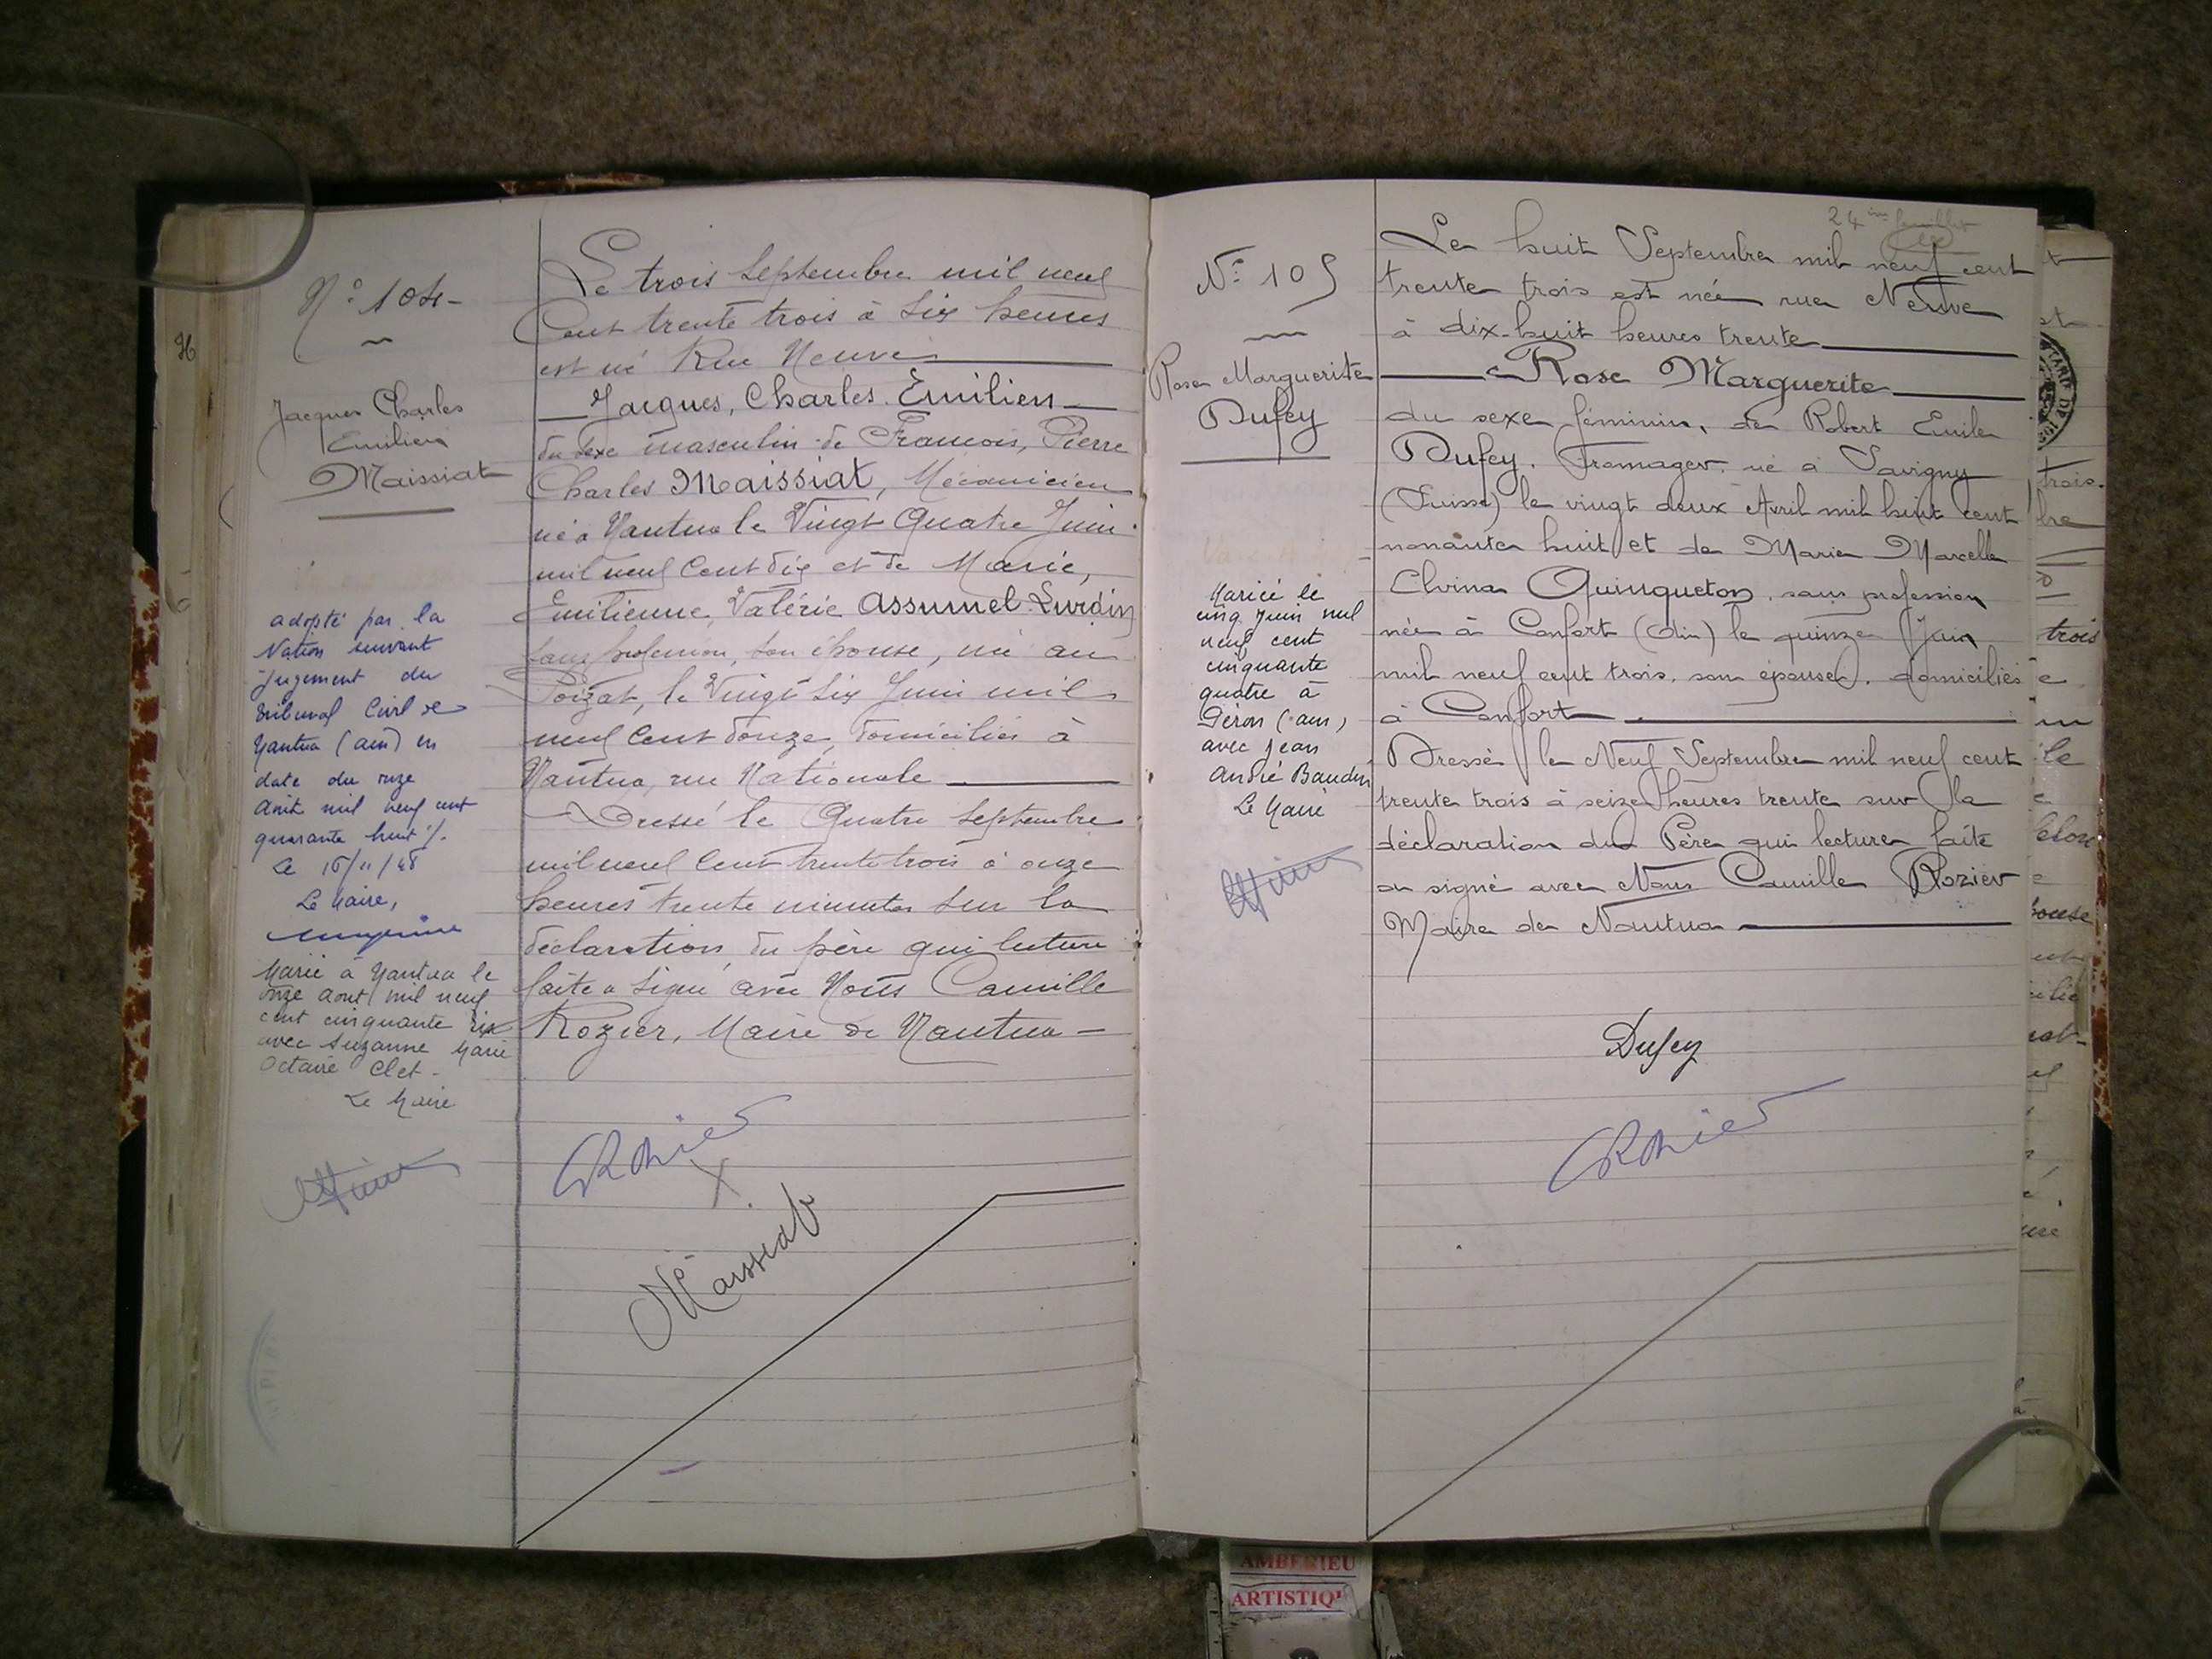 N° 104-
Jacques Charles
Emilien
Maissiat
adopté par la
Nation suivant
jugement du
tribunal Civil de
Nantua (ain) en
date du onze
août mil neuf cent
quarante huit %.
Le 16/11/48
Le Maire,
Marié à Nantua le
onze aout mil neuf
cent cinquante six
avec Suzanne Marie
Octavie Clet -
Le Maire
Le trois Septembre mil neuf
Cent trente trois à six heures
est né Rue Neuve
Jacques, Charles. Emilien
du sexe masculin de François, Pierre
Charles Maissiat, Mécanicien
né à Nantua le Vingt Quatre Juin
mil neuf Cent dix et de Marie,
Emilienne, Valérie Assumel-Lurdin
sans profession, son épouse, né au
Poizat, le Vingt six Juin mil
neuf Cent douze, domiciliés à
Nantua, rue Nationale
Dressé le Quatre Septembre
mil neuf Cent trente trois à onze
heures trente minutes sur la
déclaration du père qui lecture
faite a signé avec Nous Camille
Rozier, Maire de Nantua -
CRozier
X
Maissiat
24
N° 105
Rose Marguerite
Dufey
Mariée le
cinq Juin mil
neuf cent
cinquante
quatre à
Péron (ain)
avec Jean
André Baudin
Le Maire
Le huit Septembre mil neuf cent
trente trois est née rue Neuve
à dix-huit heures trente
Rose Marguerite
du sexe féminin, de Robert Emile
Dufey. Fromager. né à Savigny
(Suisse) le vingt deux Avril mil huit cent
nonante huit et de Marie Marcelle
Elvina Quinqueton, sans profession
née à Confort (Ain) le quinze Juin
mil neuf cent trois. son épouse. domiciliés
à Confort
Dressé le Neuf Septembre mil neuf cent
trente trois à seize heures trente sur la
déclaration du Père qui lecture faite
a signé avec Nous Camille Rozier
Maire de Nantua
Dufey
CRozier
trois.
trois
AMBERIEU
ARTISTIQ